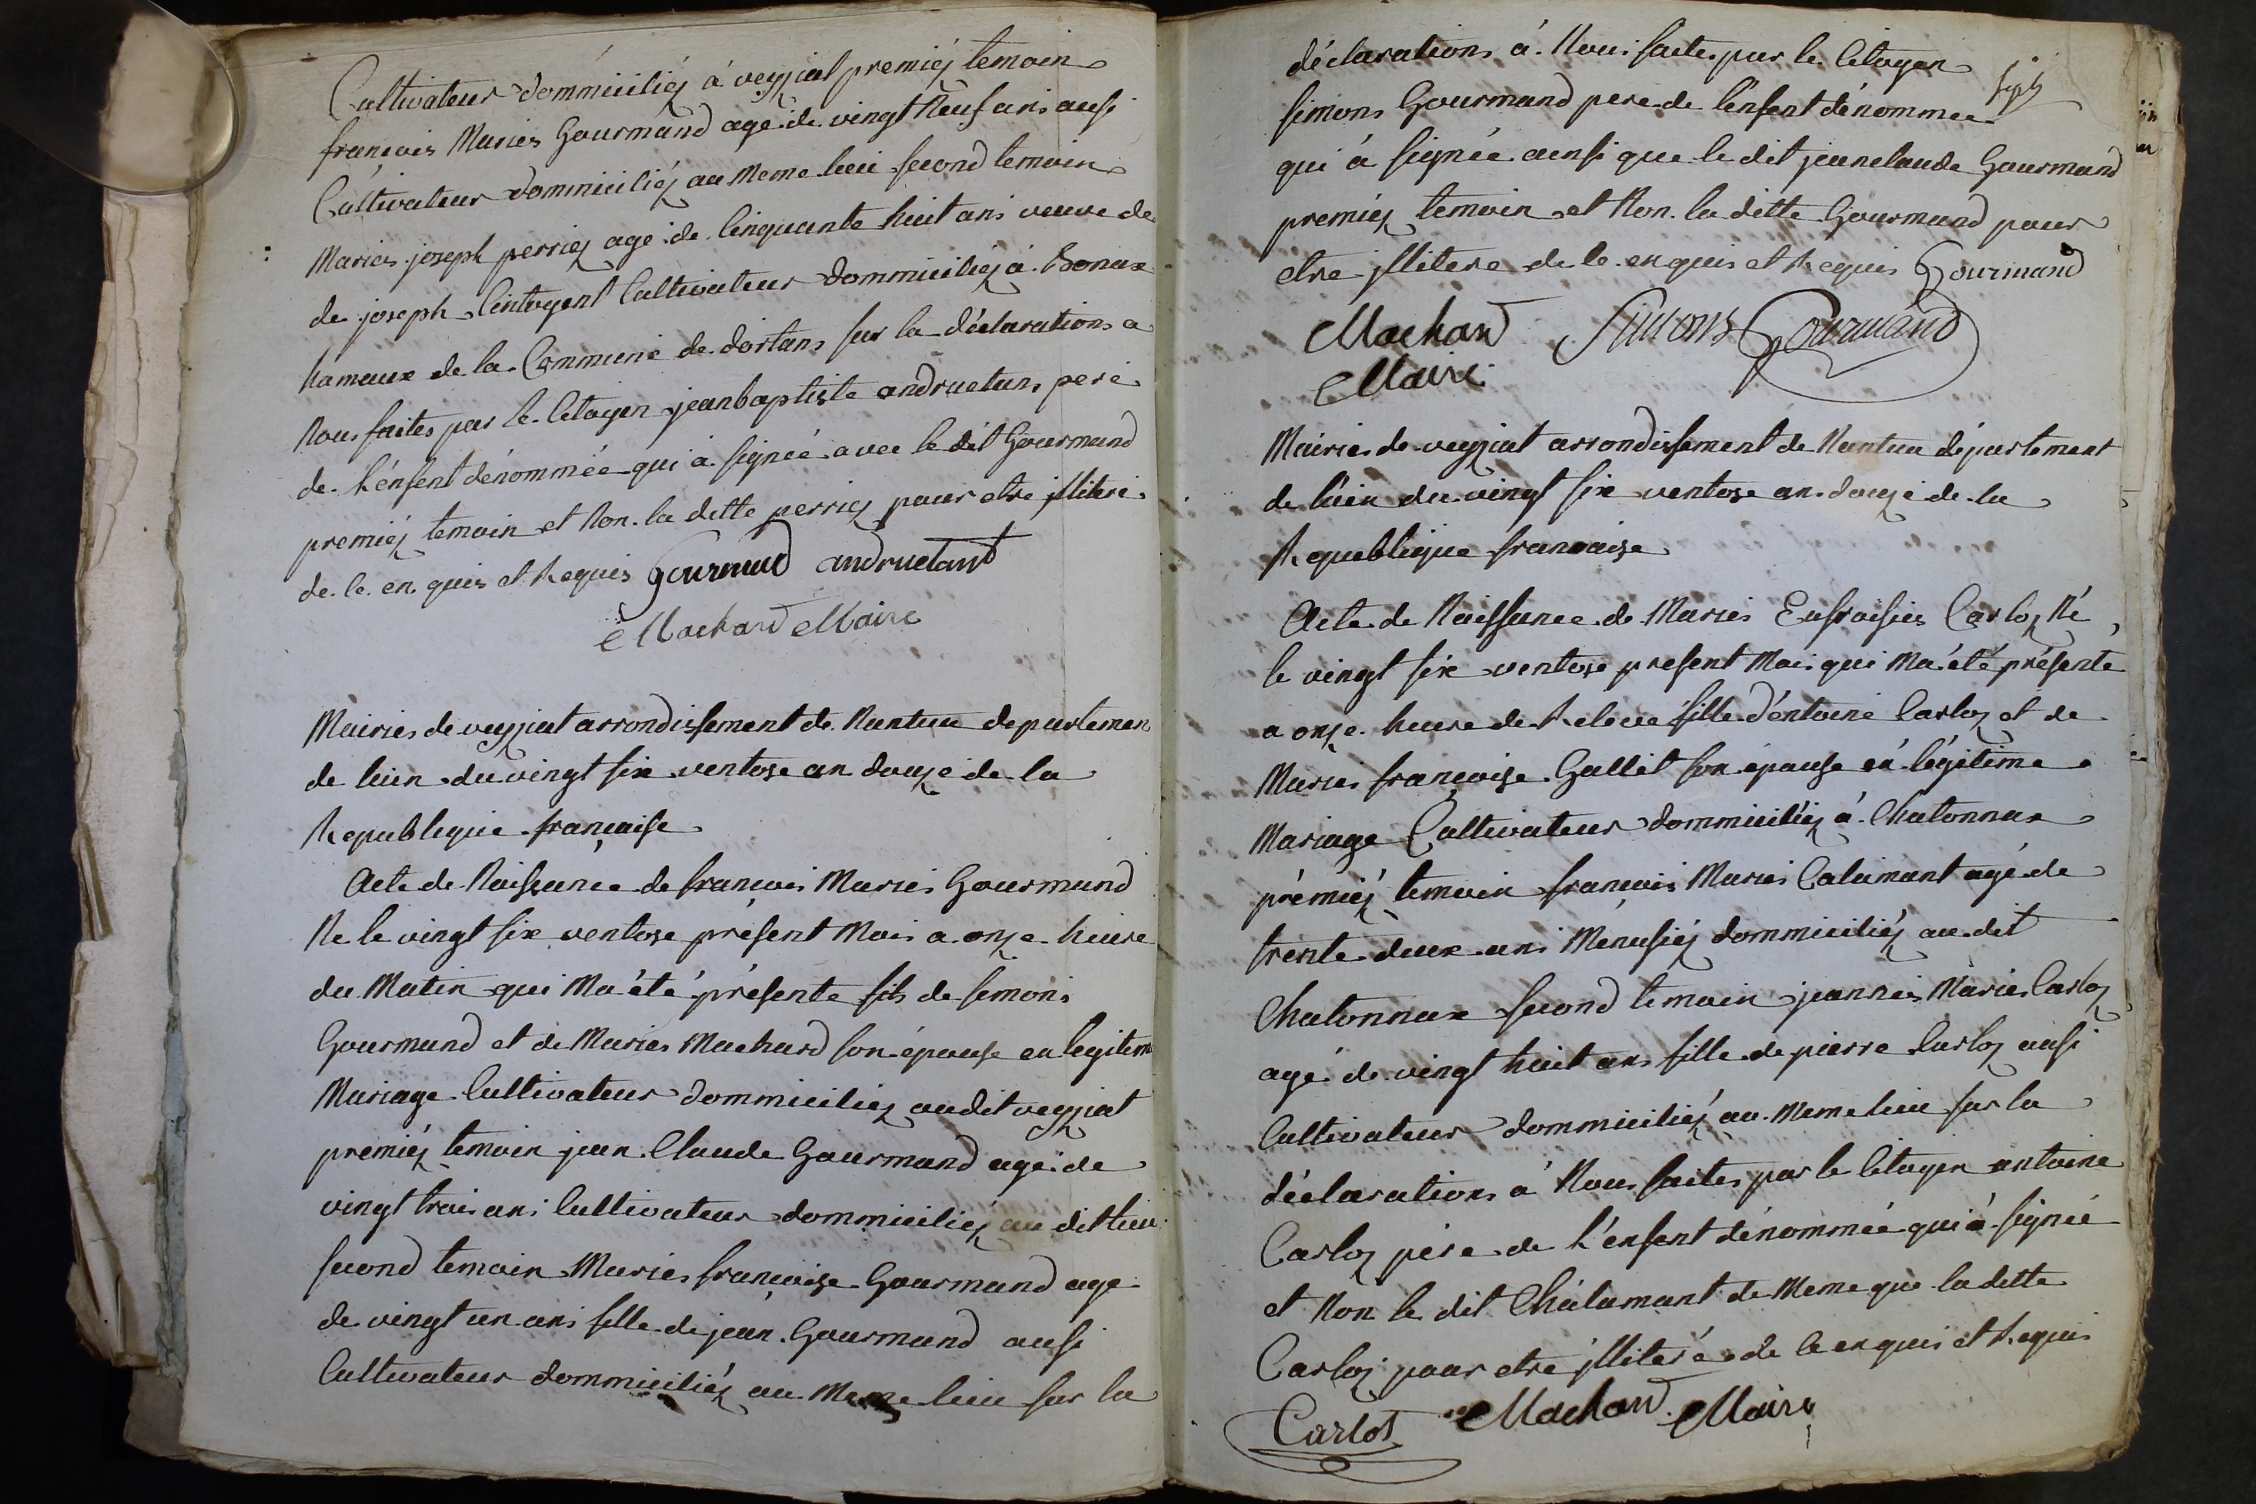 Cultivateur dommiciliéz à veyziat premiéz temoin
françois Maries Gourmand agé de vingt Neuf ans ausi
Cultivateur dommiciliéz au Meme lieu second temoin
Maries joseph perriez agé de Cinquante huit ans veuve de
de joseph Cintoyent Cultivateur dommiciliéz à Bonax
hameaux de la Commune de dortans sur la déclarations a
Nous faites par le Citoyen jeanbaptiste andruetans pere
de L'énfent dénommée qui à signée avec le dit Gourmand
premiéz temoin et Non la ditte perriez pour etre jllitere
de ce en quis et Requis Gourmad andruetant
Machard Maire
Mairies de veyziat arrondissement de Nantua departemen
de lain du vingt six ventose an douze de la
Republique française
Acte de Naissance de françois Maries Gourmand
Ne le vingt six ventose présent Mois a onze heure
du Matin qui Ma été présente fils de simons
Gourmand et de Maries Machard son épouse en legitime
Mariage Cultivateur dommiciliez audit veyziat
premiéz temoin jean Claude Gourmand agé de
vingt trois ans Cultivateur dommiciliéz au dit lieu
second temoin Maries françoise Gourmand age
de vingt un ans fille de jean Gourmand ausi
Cultivateur dommiciliéz au Meme lieu sur la
déclarations à Nous faites par le Citoyen
simons Gourmand pere de l'énfent dénommee
qui à signée ainsi que le dit jeanclaude Gourmand
premiéz temoin et Non la ditte Gourmand pour
etre jllitere de ce en quis et Requis Gourmand
Machard Simons Gourmand
Maire
Mairies de veyziat arrondissement de Nantua département
de lain du vingt six ventose an douze de la
Republique francaise
Acte de Naissance de Maries Eufroisies Carloz Né
le vingt six ventose present Mois qui Ma été présente
a onze heure de Relevé fille d'éntoine Carloz et de
Maries françoise Gallet son épouse én légitime
Mariage Cultivateur dommiciliéz à Chatonnax
prémiéz temoin françois Maries Calamant agé de
trente deux ans Menusiéz dommiciliéz au dit
Chatonnax second temoin jeannes Maries Carloz
agé de vingt huit ans fille de pierre Carloz ausi
Cultivateur dommiciliéz au Meme lieu sur la
déclarations à Nous faites par le Citoyen antoine
Carloz pére de L'énfent dénommée qui à signée
et Non le dit Chalamant de Meme que la ditte
Carloz pour etre jlliteré de ce en quis et Requis
Carlot Machard Maire